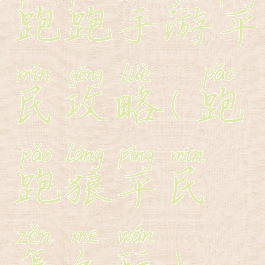 跑跑手游平
mín gōng lüè pǎo
民攻略(跑
pǎo láng píng mín
跑狼平民
zěn me wán
怎么玩)